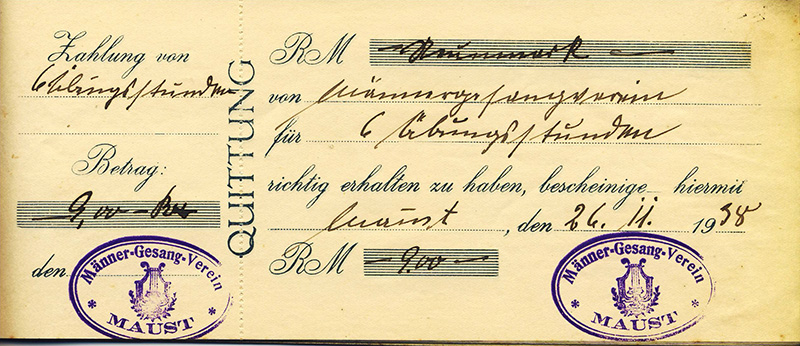 Zahlung von
6 Übungsstunden
Betrag:
9,00 RM
den
Männer-Gesang-Verein
* MAUST *
QUITTUNG
RM Neunmark
von Männergesangverein
für 6 Übungsstunden
richtig erhalten zu haben, bescheinige hiermit
Maust, den 26. 11. 1938
RM 9.00
Männer-Gesang-Verein
* MAUST *